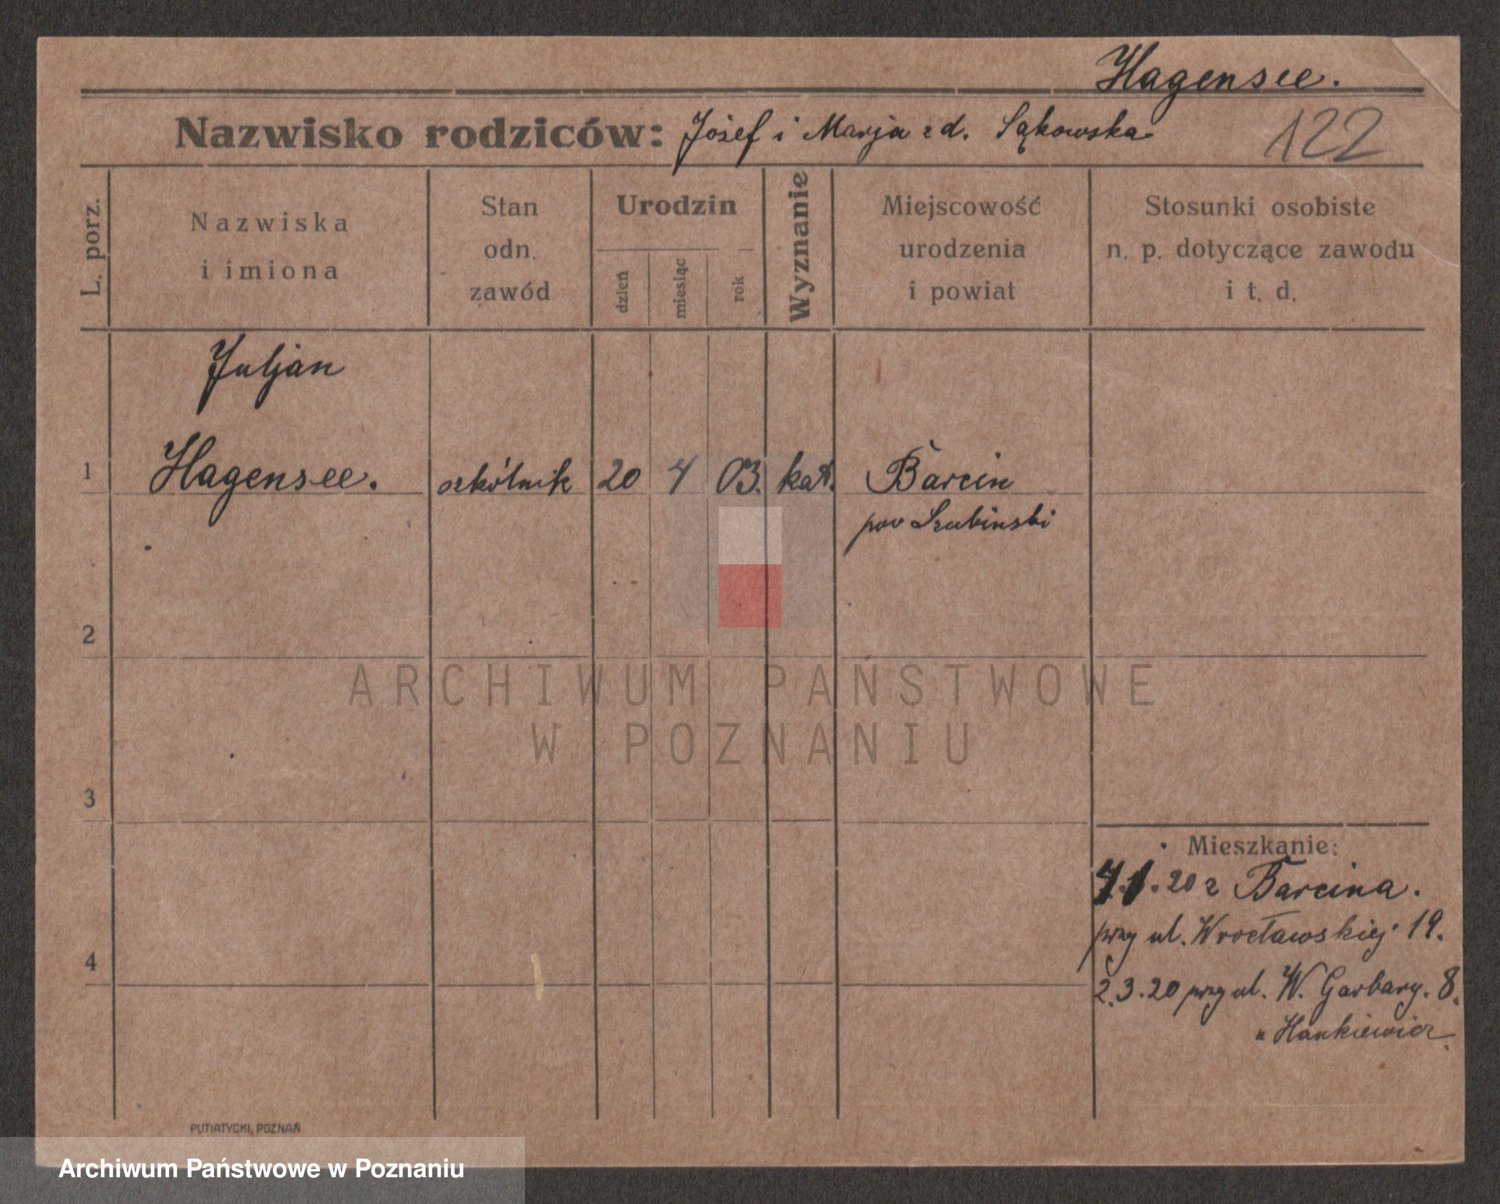 Hagensee.
Nazwisko rodziców: Józef i Marja z d. Sąkowska
122
L. porz.
Nazwiska
i imiona
Stan
odn.
zawód
Urodzin
dzień
miesiąc
rok
Wyznanie
Miejscowość
urodzenia
i powiat
Stosunki osobiste
n. p. dotyczące zawodu
i t. d.
Juljan
1 Hagensee. szkólnik 20 4 03. kat. Barcin
pow Szubinski
2
3
4
ARCHIWUM PAŃSTWOWE
W POZNANIU
Mieszkanie:
.20 z Barcina.
przy ul. Wrocławskiej 19.
2.3.20 przy ul. W. Garbary. 8.
u Hankiewicz
PUTIATYCKI, POZNAŃ
Archiwum Państwowe w Poznaniu